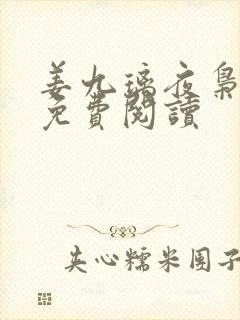 姜九璃夜枭
免费閱讀
夹心糯米团子